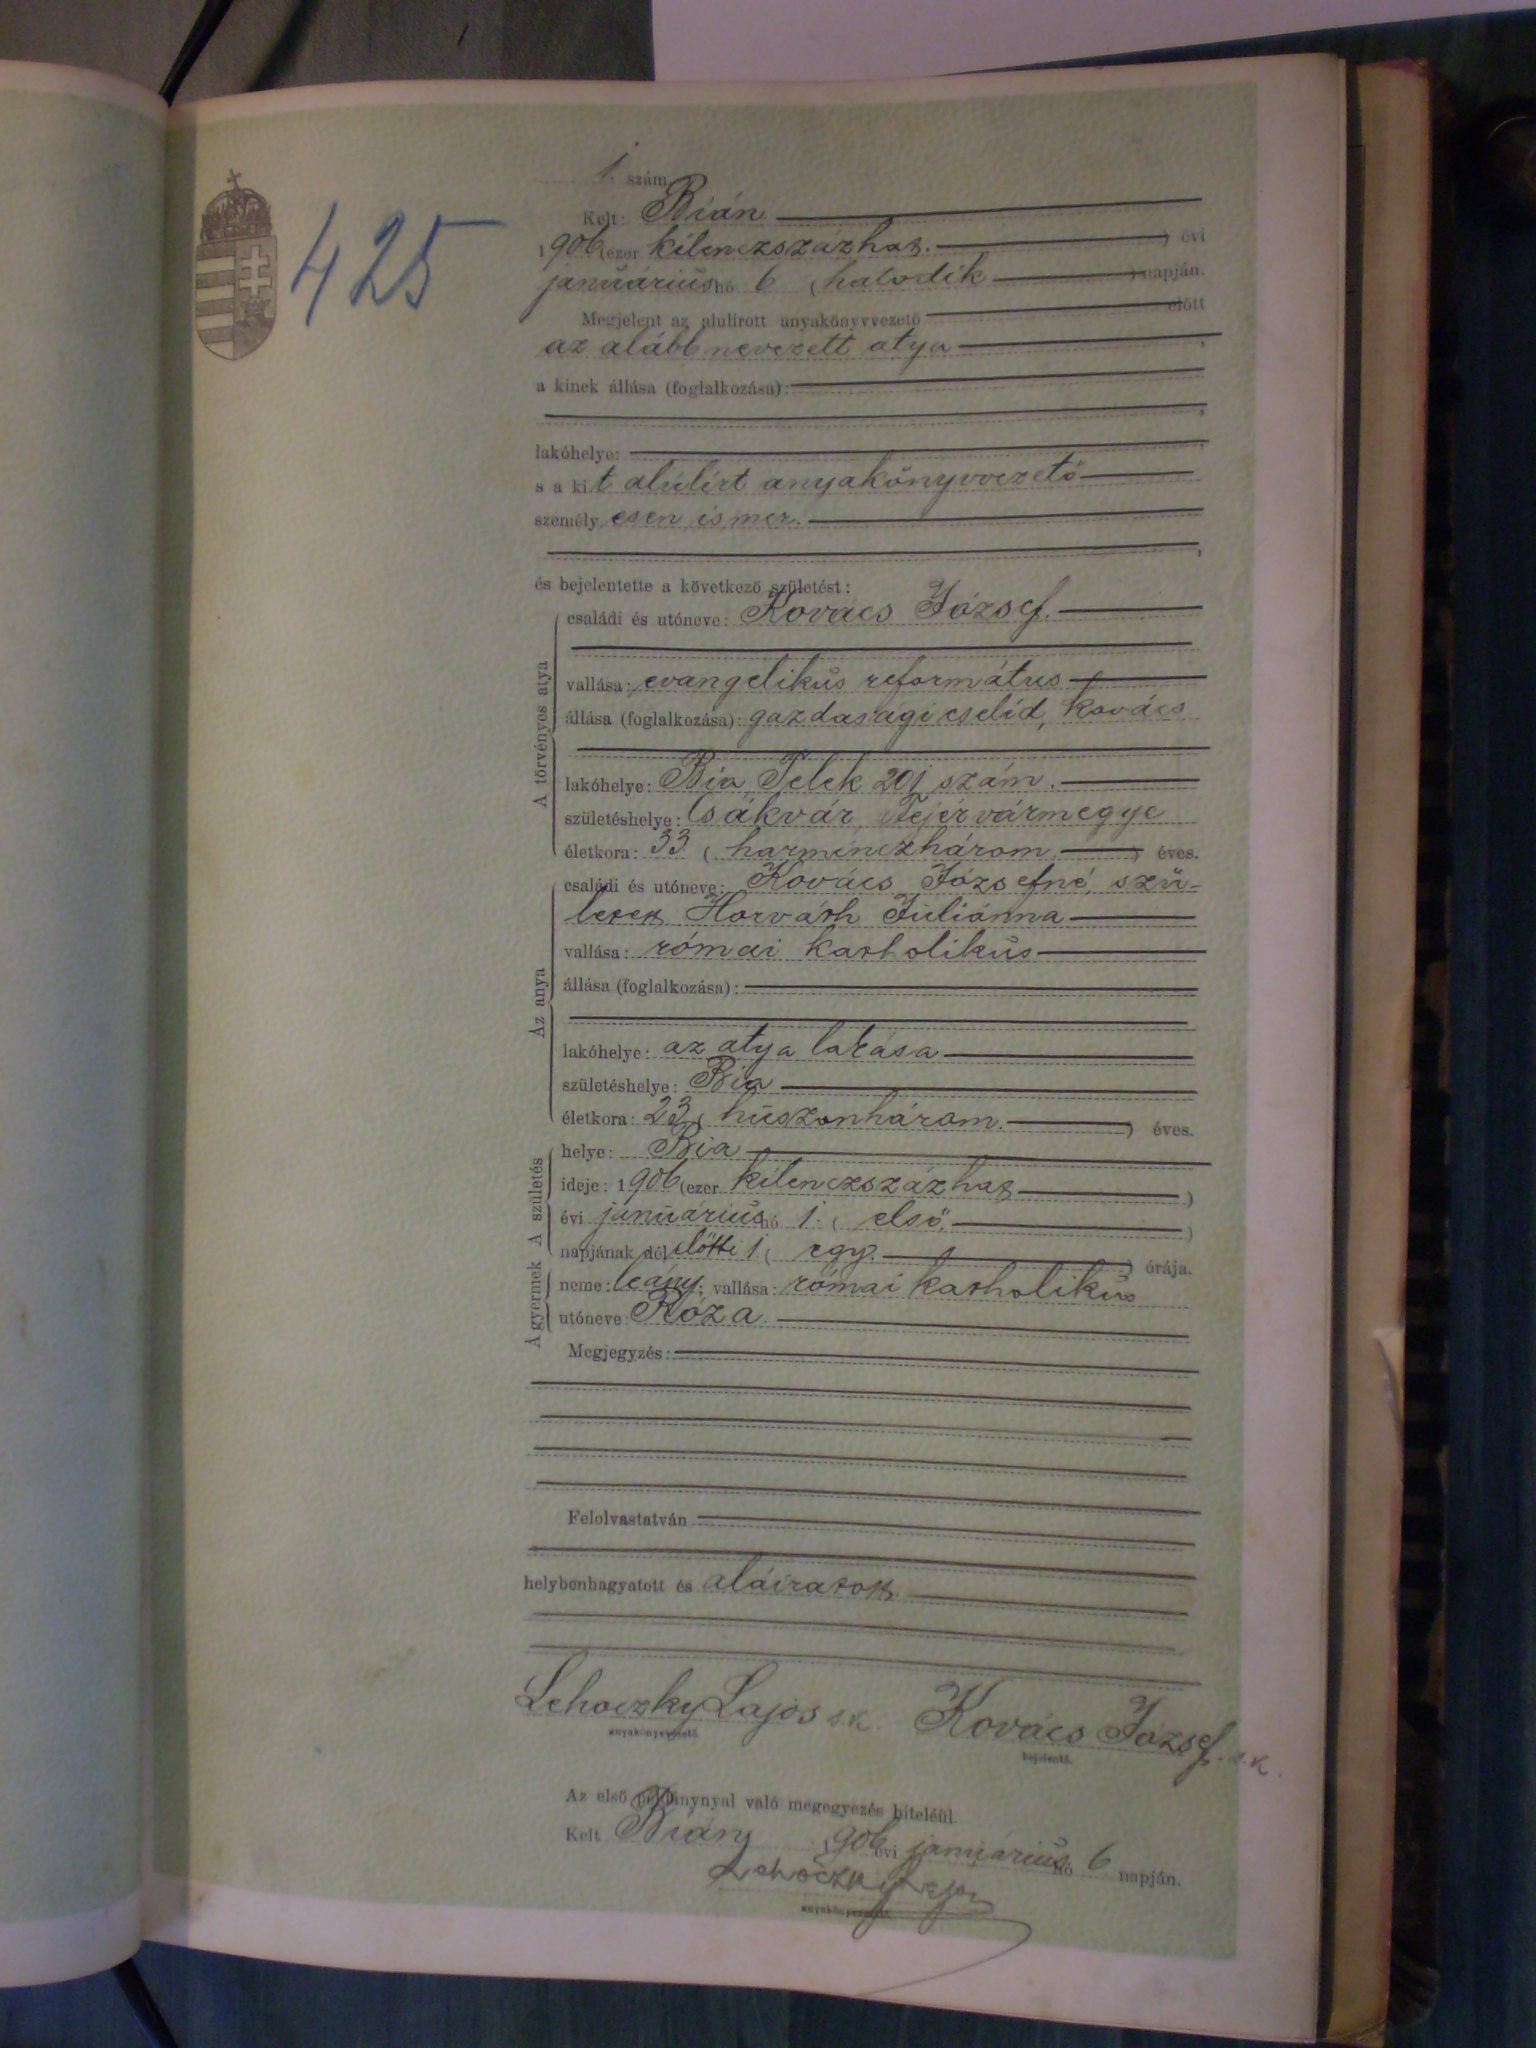 425
1. szám
Kelt: Bián
1906 (ezer kilenczszázhat.) évi
januárius hó 6 (hatodik) napján.
Megjelent az alulirott anyakönyvvezető előtt
az alább nevezett atya,
a kinek állása (foglalkozása):
,
lakóhelye:
s a kit alúlírt anyakönyvvezető
személyesen ismer.
,
és bejelentette a következő születést:
A törvényes atya
családi és utóneve: Kovács József.
vallása: evangelikús református
állása (foglalkozása): gazdasági cseléd, kovács
lakóhelye: Bia, Telek 201 szám.
születéshelye: Csákvár, Fejérvármegye
életkora: 33 (harminczhárom) éves.
Az anya
családi és utóneve: Kovács Józsefné, szü-
letett Horváth Juliánna
vallása: római katholikús
állása (foglalkozása):
lakóhelye: az atya lakása
születéshelye: Bia
életkora: 23 (húszonhárom.) éves.
A születés
helye: Bia
ideje: 1906 (ezer kilenczszázhat)
évi januárius hó 1. (első.)
napjának dél előtti 1 (egy.) órája.
A gyermek
neme: leány; vallása: római katholikús
utóneve: Róza.
Megjegyzés:
Felolvastatván
helybenhagyatott és aláiratott.
Lehoczky Lajos s.k. Kovács József. s.k.
anyakönyvvezető. bejelentő.
Az első példánynyal való megegyezés hiteléül.
Kelt Bián, 1906 évi januárius hó 6 napján.
Lehoczky Lajos
anyakönyvvezető.